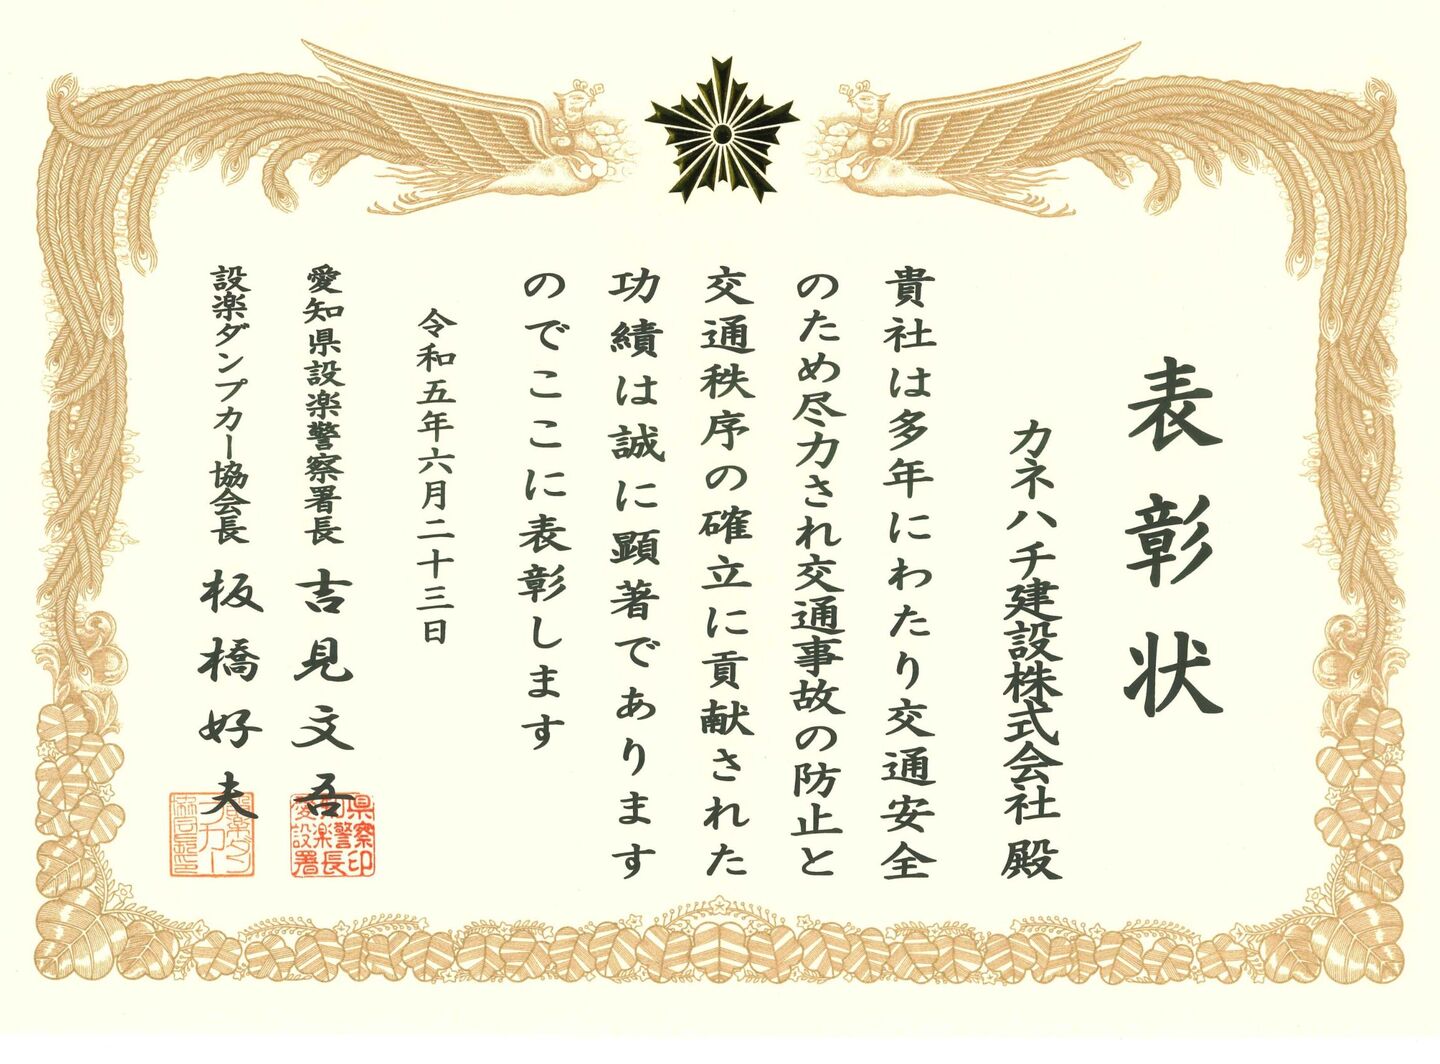 表彰状
カネハチ建設株式会社 殿
貴社は多年にわたり交通安全
のため尽力され交通事故の防止と
交通秩序の確立に貢献された
功績は誠に顕著であります
のでここに表彰します
令和五年六月二十三日
愛知県設楽警察署長 吉見文吾
設楽ダンプカー協会長 板橋好夫